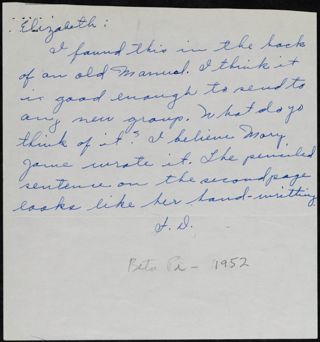 Elizabeth:
I found this in the back
of an old Manual. I think it
is good enough to send to
any new group. What do yo
think of it? I believe Mary
Jane wrote it. The penciled
sentence on the second page
looks like her hand-writting
F. D.
Beta Pi - 1952